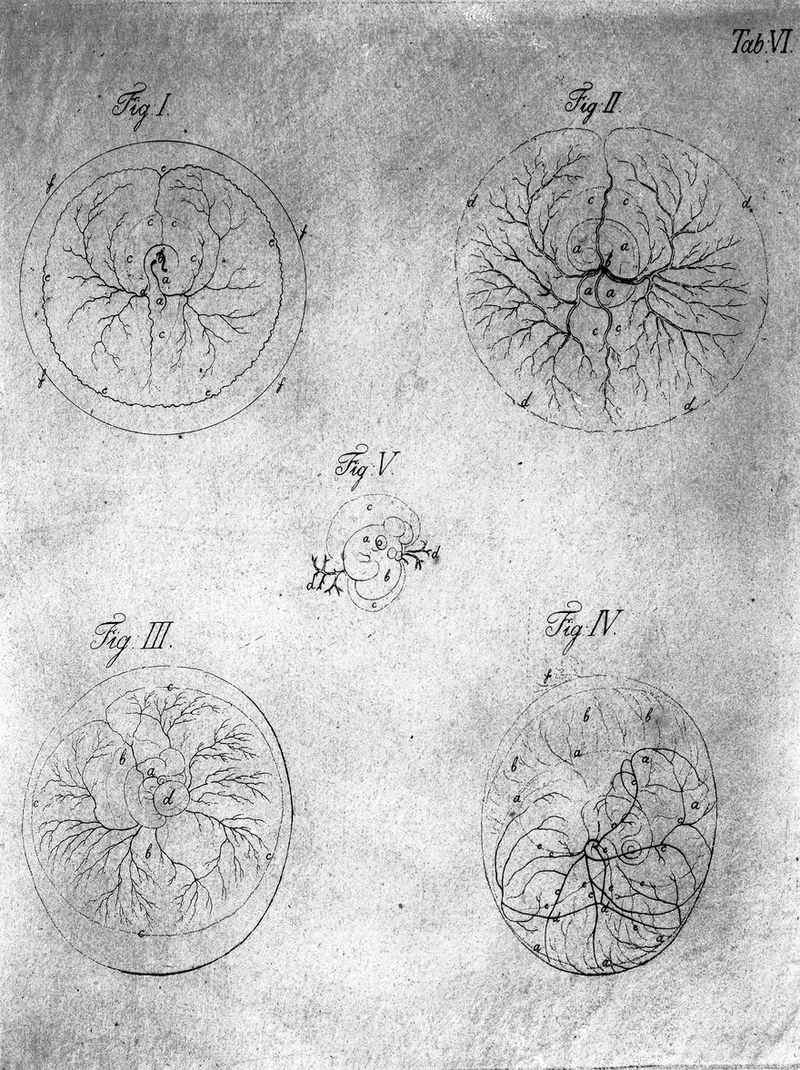 Tab: VI.
Fig I.
Fig: II.
f
c
f
c c
e
c
b
c
a
e
a
a
c
e
e
f
f
d
d
c c
a
a
b
a
a
c
c
d
d
Fig: V.
c
a
b
d
d
c
Fig. III.
Fig: IV.
c
b
a
d
c
b
c
c
f
b
b
a
a
b
a
a
c
c
e
c
e
d
d
a
a
a